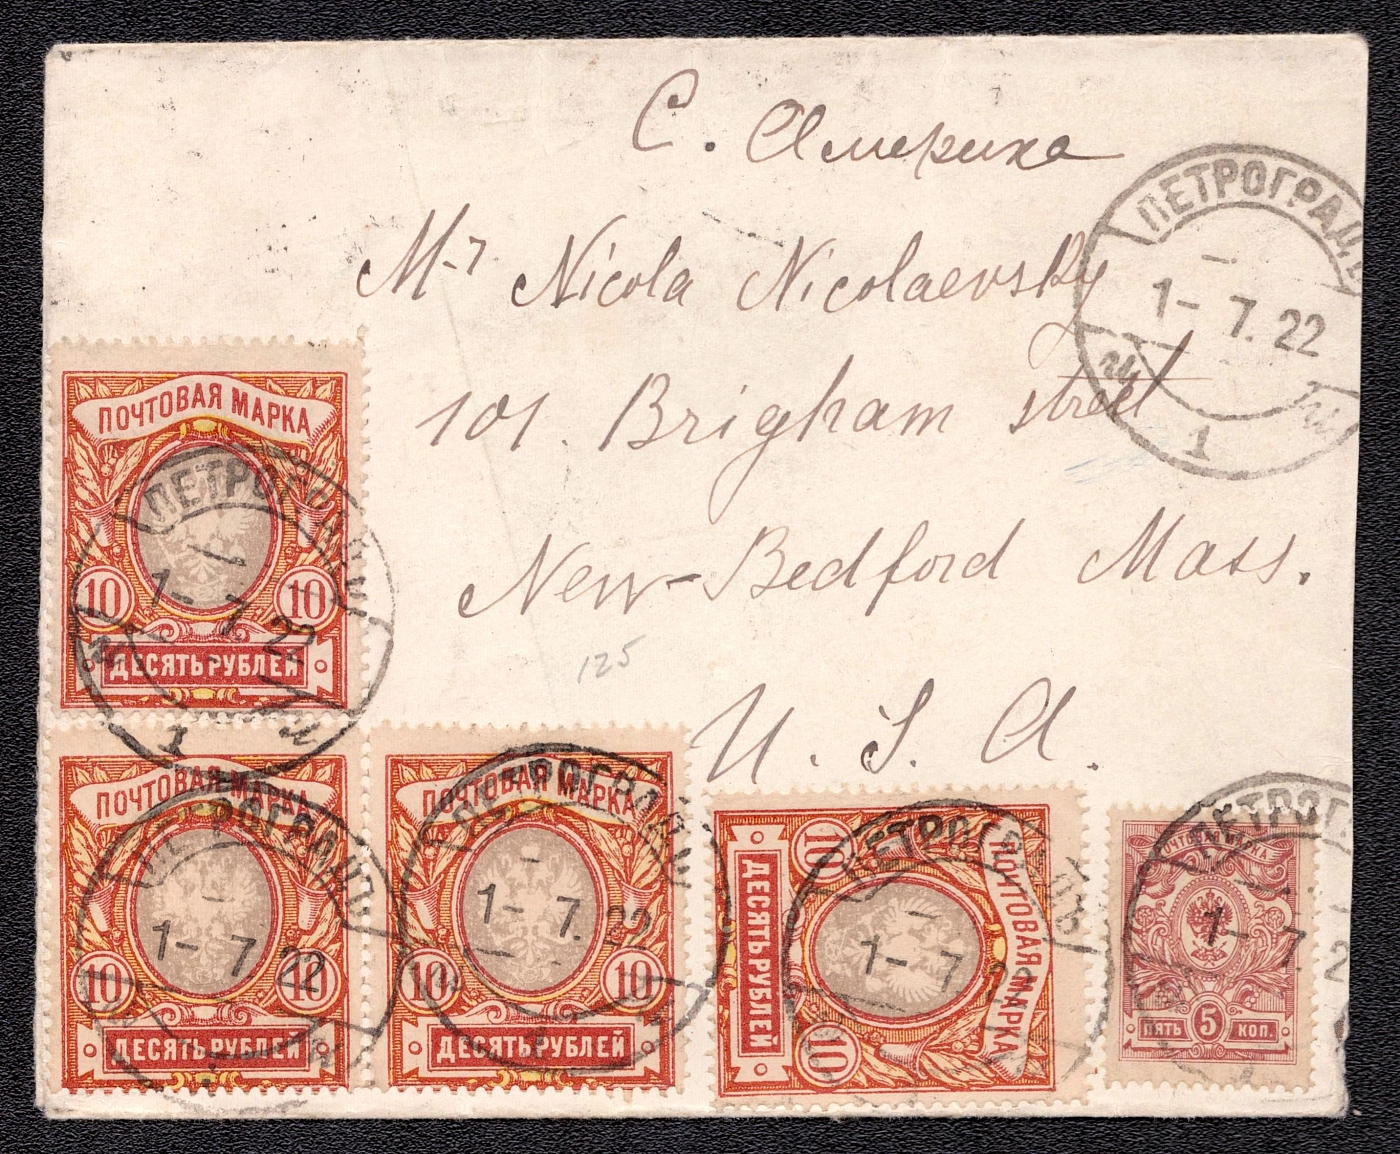 С. Америка
Mr. Nicola Nicolaevsky
101. Brigham street
New-Bedford Mass.
U. S. A.
125
ПЕТРОГРАДЪ
1-7.22
1
ПОЧТОВАЯ МАРКА
10 10
ДЕСЯТЬ РУБЛЕЙ
ПЕТРОГРАДЪ
1-7.22
1
ПОЧТОВАЯ МАРКА
10 10
ДЕСЯТЬ РУБЛЕЙ
ПЕТРОГРАДЪ
1-7.22
ПОЧТОВАЯ МАРКА
10 10
ДЕСЯТЬ РУБЛЕЙ
ПЕТРОГРАДЪ
1-7.22
ПОЧТОВАЯ МАРКА
10 10
ДЕСЯТЬ РУБЛЕЙ
ПЕТРОГРАДЪ
1-7.22
ПОЧТОВАЯ МАРКА
ПЯТЬ 5 КОП.
ПЕТРОГ
1-7.2